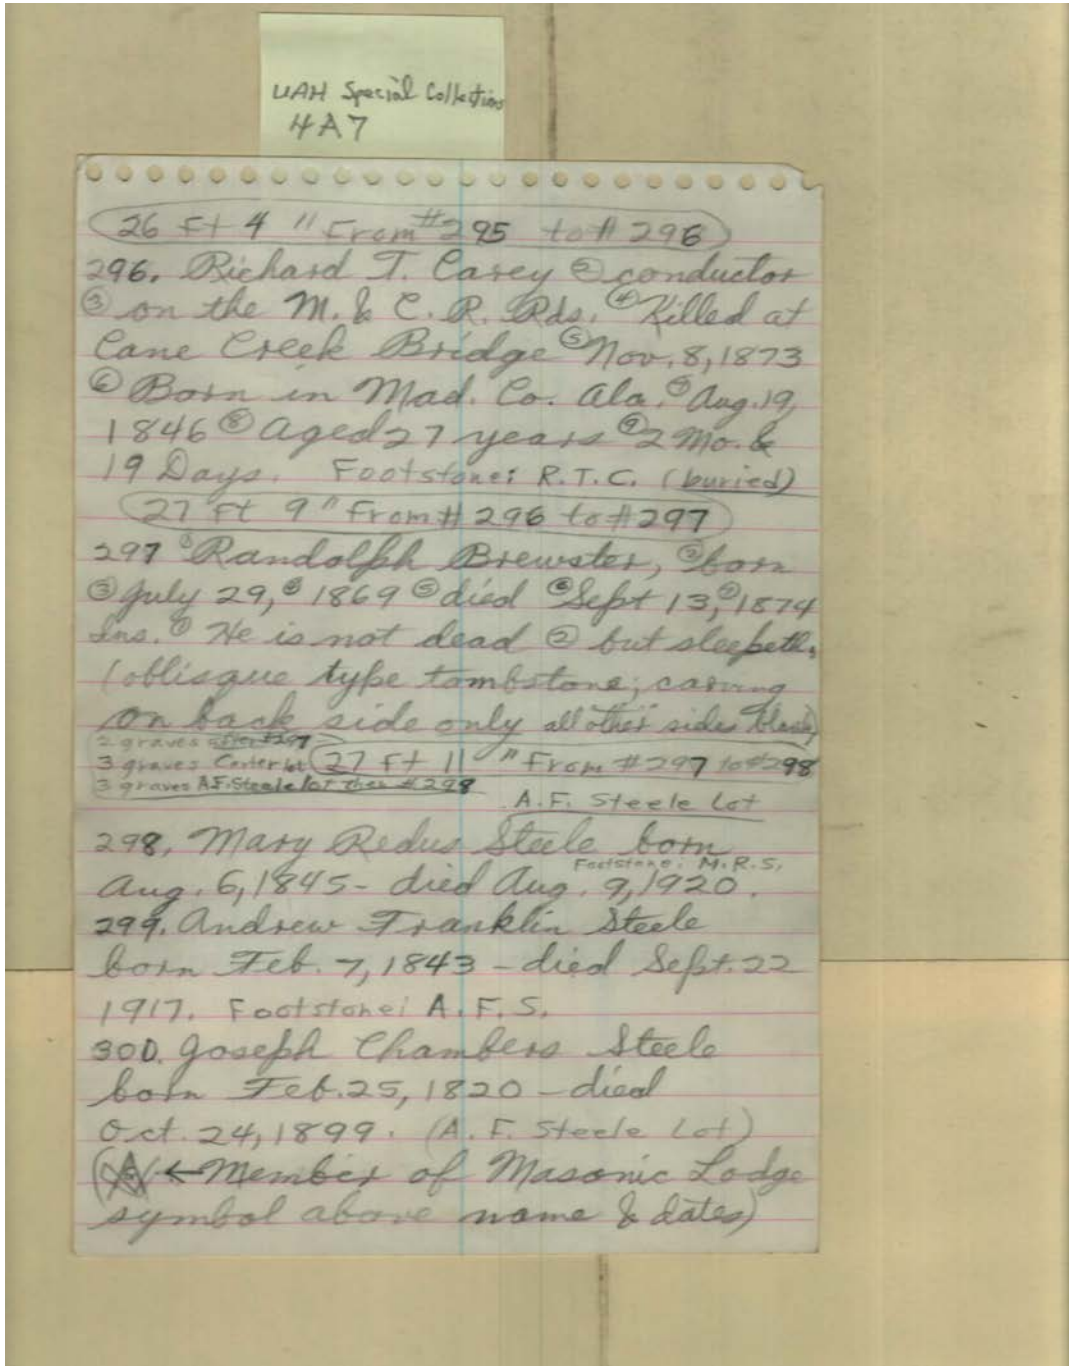 UAH Special Collections
4A7
26 Ft 4 " From #295 to # 296
296. Richard T. Carey ② conductor
③ on the M. & C. R. Rds. ④ Killed at
Cane Creek Bridge ⑤ Nov. 8, 1873
⑥ Born in Mad. Co. Ala. ⑦ Aug. 19,
1846 ⑧ Aged 27 years ⑨ 2 Mo. &
19 Days. Footstone: R.T.C. (buried)
27 Ft 9 " From # 296 to #297
297 ① Randolph Brewster, ② born
③ July 29, ④ 1869 ⑤ died ⑥ Sept 13, ⑦ 1874
Ins. ① He is not dead ② but sleepeth.
(oblisque type tombstone; carving
on back side only all other sides blank)
2 graves after #297
3 graves Carter lot 27 Ft 11 " From #297 to #298
3 graves A.F. Steele lot then #298
A.F. Steele Lot
298. Mary Redus Steele born
Footstone: M.R.S.
Aug. 6, 1845 - died Aug. 9, 1920.
299. Andrew Franklin Steele
born Feb. 7, 1843 - died Sept. 22
1917. Footstone: A.F.S.
300. Joseph Chambers Steele
born Feb. 25, 1820 - died
Oct. 24, 1899. (A.F. Steele Lot)
( ← Member of Masonic Lodge
symbol above name & dates)